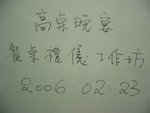 高桌晚宴
餐桌禮儀工作坊
2006.02.23